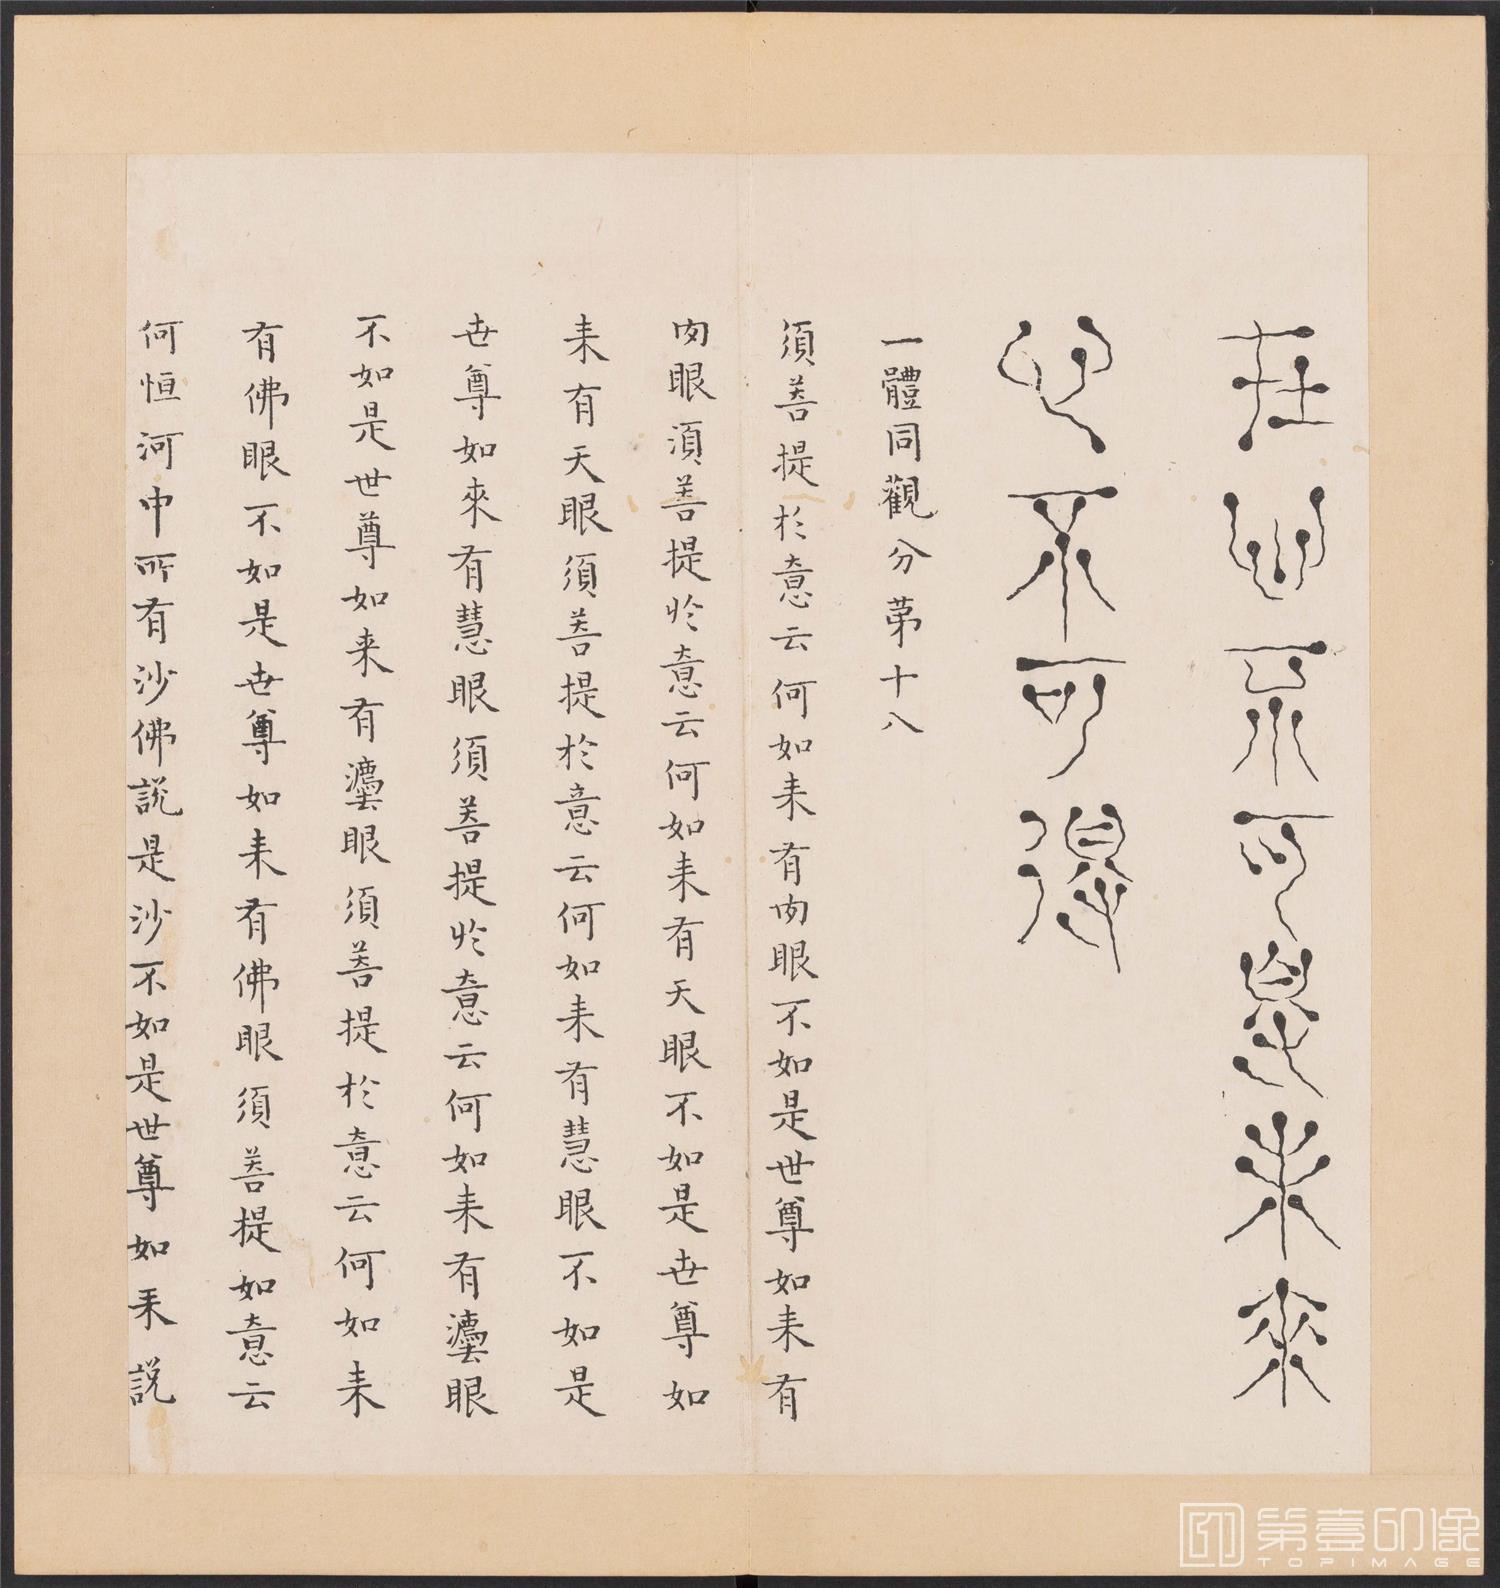 在心不可得未來
心不可得
一體同觀分第十八
須菩提於意云何如来有肉眼不如是世尊如来有
肉眼須菩提於意云何如来有天眼不如是世尊如
来有天眼須菩提於意云何如来有慧眼不如是
世尊如來有慧眼須菩提於意云何如来有灋眼
不如是世尊如来有灋眼須菩提於意云何如来
有佛眼不如是世尊如来有佛眼須菩提如意云
何恒河中所有沙佛説是沙不如是世尊如来説
第壹印像
TOPIMAGE